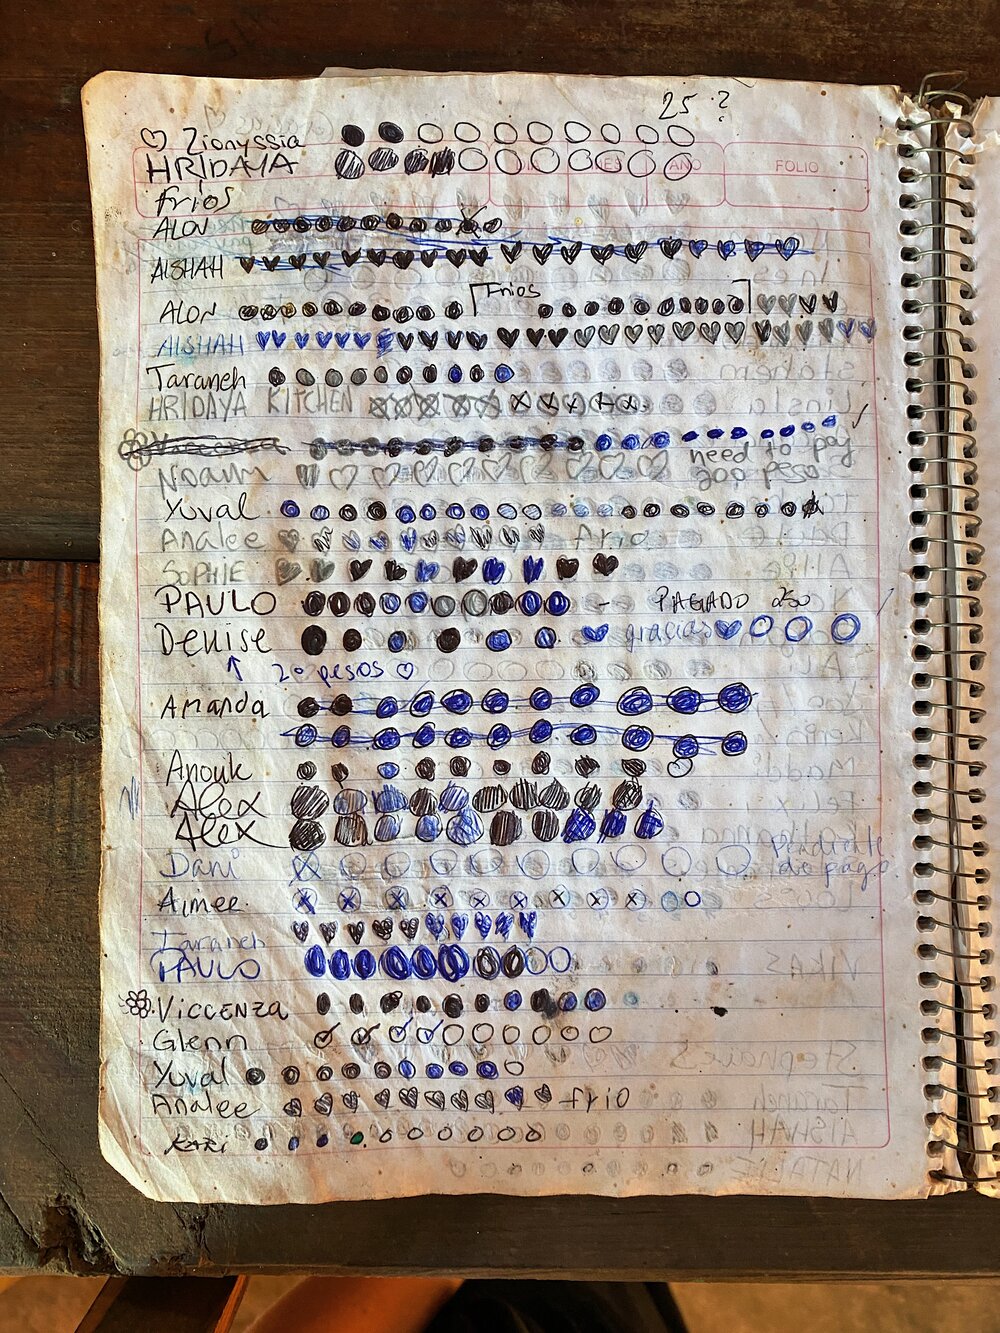 25 ?
Zionyssia
HRIDAYA
AÑO FOLIO
fríos
ALON
AISHAH
ALON Frios
AISHAH
Taraneh
HRIDAYA KITCHEN
need to pay
Noam 200 peso
Yuval
Analee frio
SOPHIE
PAULO - PAGADO 250
Denise gracias
↑ 20 pesos
Amanda
Anouk
Alex
Alex
Dani Pendiente
de pago
Aimee
Taraneh
PAULO
VICCENZA
Glenn
Yuval
Analee frio
KARI